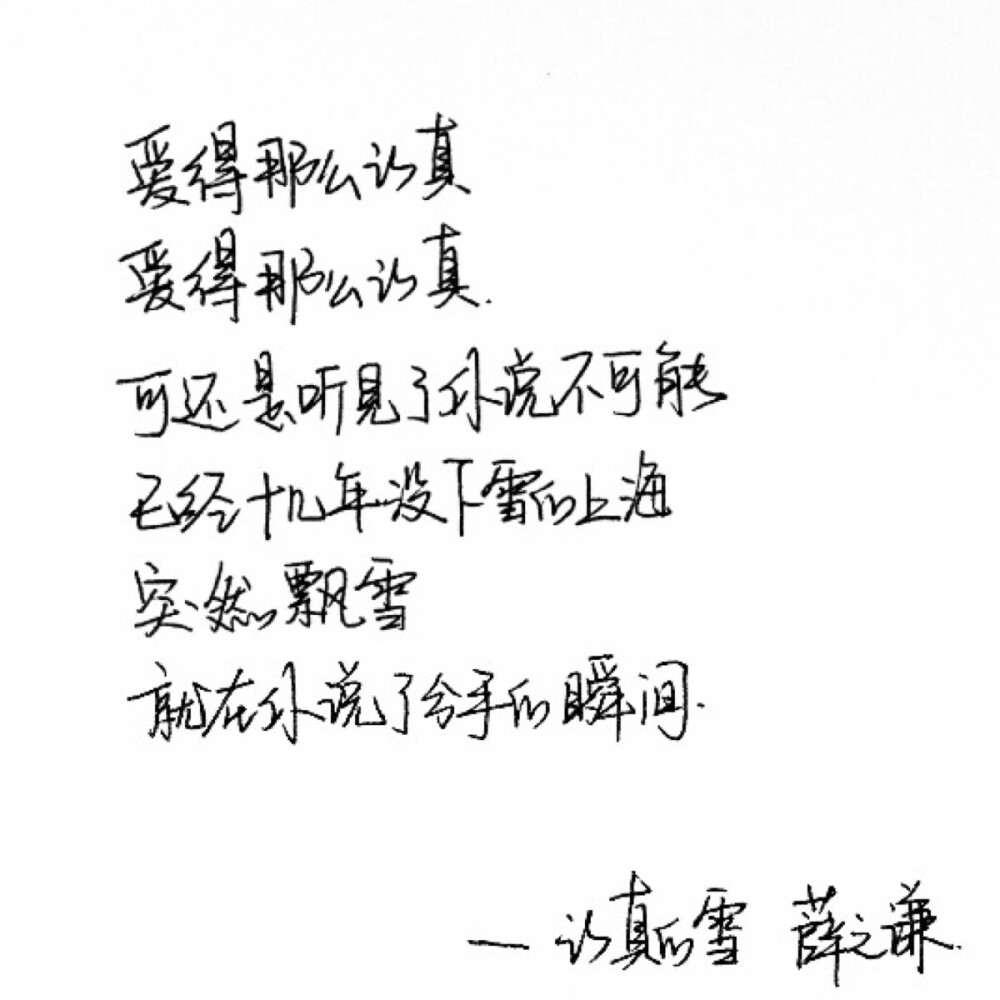 爱得那么认真
爱得那么认真.
可还是听见了你说不可能
已经十几年没下雪的上海
突然飘雪
就在你说了分手的瞬间.
— 认真的雪 薛之谦.